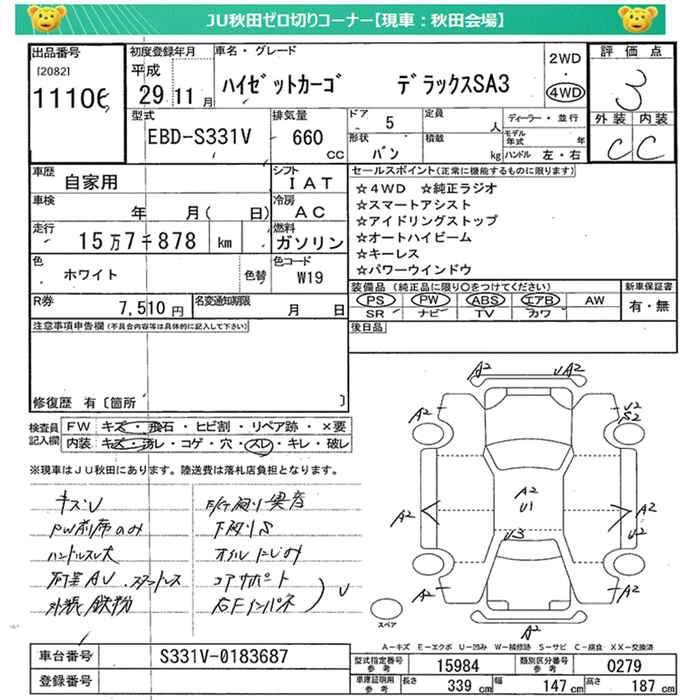 JU秋田ゼロ切りコーナー【現車：秋田会場】
出品番号
[2082]
11106
初度登録年月
平成
29 11 月
車名・グレード
ハイゼットカーゴ デラックスSA3
2WD
・
4WD
評価点
3
外装 内装
C C
型式
EBD-S331V
排気量
660
CC
ドア 5
形状 バン
定員 人
積載 kg
ディーラー・並行
モデル年式 年
ハンドル 左・右
車歴
自家用
シフト
IAT
車検
年 月( 日)
冷房
AC
走行
15万7千878 km
燃料
ガソリン
色
ホワイト
色替
色コード
W19
R券
7,510円
名変通知期限
月 日
セールスポイント(正常に機能するものに限ります)
☆4WD ☆純正ラジオ
☆スマートアシスト
☆アイドリングストップ
☆オートハイビーム
☆キーレス
☆パワーウインドウ
装備品 (純正品に限り○をつけてください)
PS PW ABS エアB AW
SR ナビ TV カワ
新車保証書
有・無
後日品
注意事項申告欄(不具合内容等は具体的に記入して下さい)
修復歴 有〔箇所 〕
検査員
記入欄
FW キズ・飛石・ヒビ割・リペア跡・×要
内装 キズ・汚レ・コゲ・穴・スレ・キレ・破レ
※現車はJU秋田にあります。陸送費は落札店負担となります。
キズU
PW前席のみ
ハンドルスレ大
石・塗AU・スタッドレス
外装鉄粉
下廻りS
オイルにじみ
コアサポート
右Fインパネ
U
A2
UA2
A2
U2
S2
A2
A2
U1
U2
U3
A2
A2
A2
スペア
A－キズ E－エクボ U－凹み W－補修跡 S－サビ C－腐食 XX－交換済
車台番号
S331V-0183687
登録番号
型式指定番号
参考
15984
類別区分番号
参考
0279
車庫証明用
参考
長さ 339 cm
幅 147 cm
高さ 187 cm